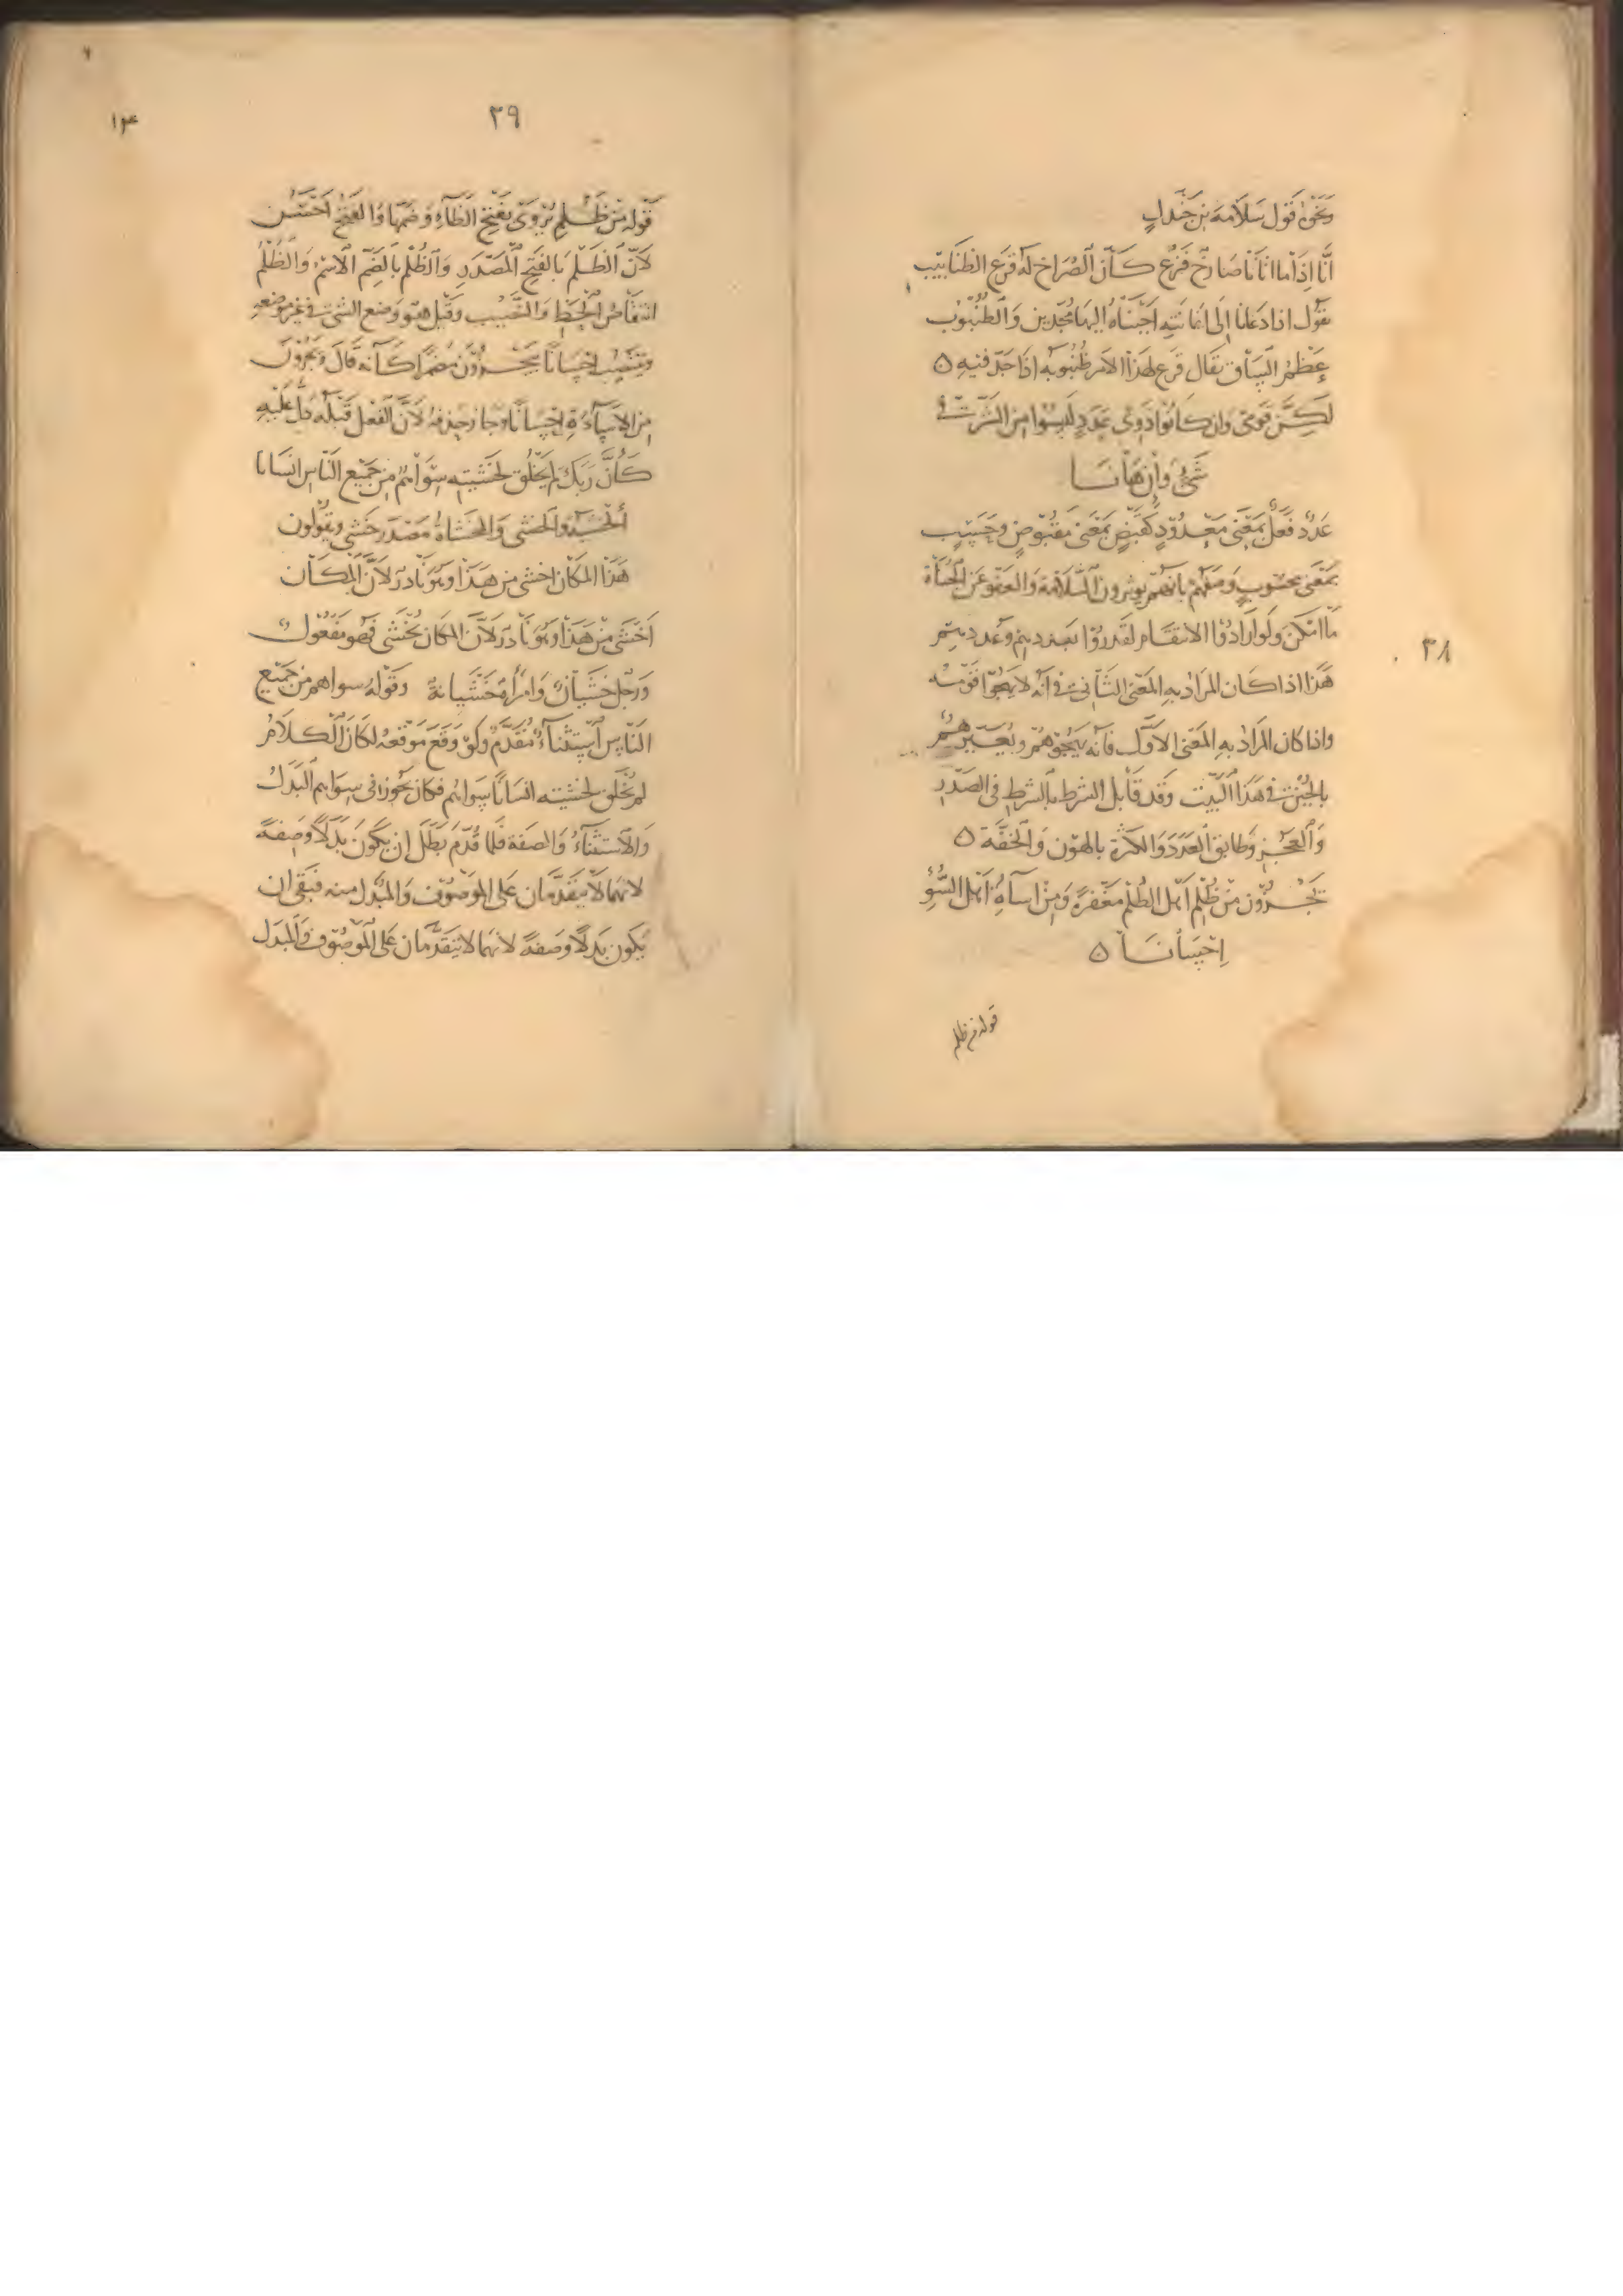 ونحوه قول سلامة بن جندل
انا اذا ما اتانا صارخ فزع كان الصراخ له قرع الظنابيب
يقول اذا دعانا الى اغاثته اجبناه اليها مجدين والظنبوب
عظم الساق يقال قرع لهذا الامر ظنبوبه اذا جد فيه ٥
لكن قومى وان كانوا ذوى عدد ليسوا من الشر فى
شئ وان هانا
عدد فعل بمعنى معدود كقبض بمعنى مقبوض وحسيب
بمعنى محسوب وصفهم بانهم يوثرون السلامة والعفو عن الجناة
ما امكن ولو ارادوا الانتقام لقدروا بعددهم وعددهم
هذا اذا كان المراد به المعنى الثانى فى انه لا يهجوا قومه
واذا كان المراد به المعنى الاول فانه يهجوهم ويعيرهم
بالجبن فى هذا البيت وقد قابل الشرط بالشرط فى الصدر
والعجز وطابق العدد والكثرة بالهون والخفة ٥
يجزون من ظلم اهل الظلم مغفرة ومن اساءة اهل السوء
احسانا ٥
قوله من ظلم
٣٨
٣٩
١٣
قوله من ظلم يروى بفتح الظاء وضمها والفتح احسن
لان الظلم بالفتح المصدر والظلم بالضم الاسم والظلم
انتقاص الحظ والنصيب وقيل هو وضع الشئ فى غير موضعه
وينصب احسانا يجزون مضمرا كانه قال ويجزون
من الاساءة احسانا وجاز حذفه لان الفعل قبله دل عليه
كان ربك لم يخلق لخشيته سواهم من جميع الناس انسانا
الخشية والخشى والمخشاة مصدر خشى ويقولون
هذا المكان اخشى من هذا وهو نادر لان المكان
اخشى من هذا وهو نادر لان المكان يخشى فهو مفعول
ورجل خشيان وامراة خشيانة وقوله سواهم من جميع
الناس استثناء مقدم ولو وقع موقعه لكان الكلام
لم يخلق لخشيته انسانا سواهم فكان يجوز فى سواهم البدل
والاستثناء والصفة فلما قدم بطل ان يكون بدلا وصفة
لانهما لا يتقدمان على الموصوف والمبدل منه فبقى ان
يكون بدلا وصفة لانهما لا يتقدمان على الموصوف والمبدل